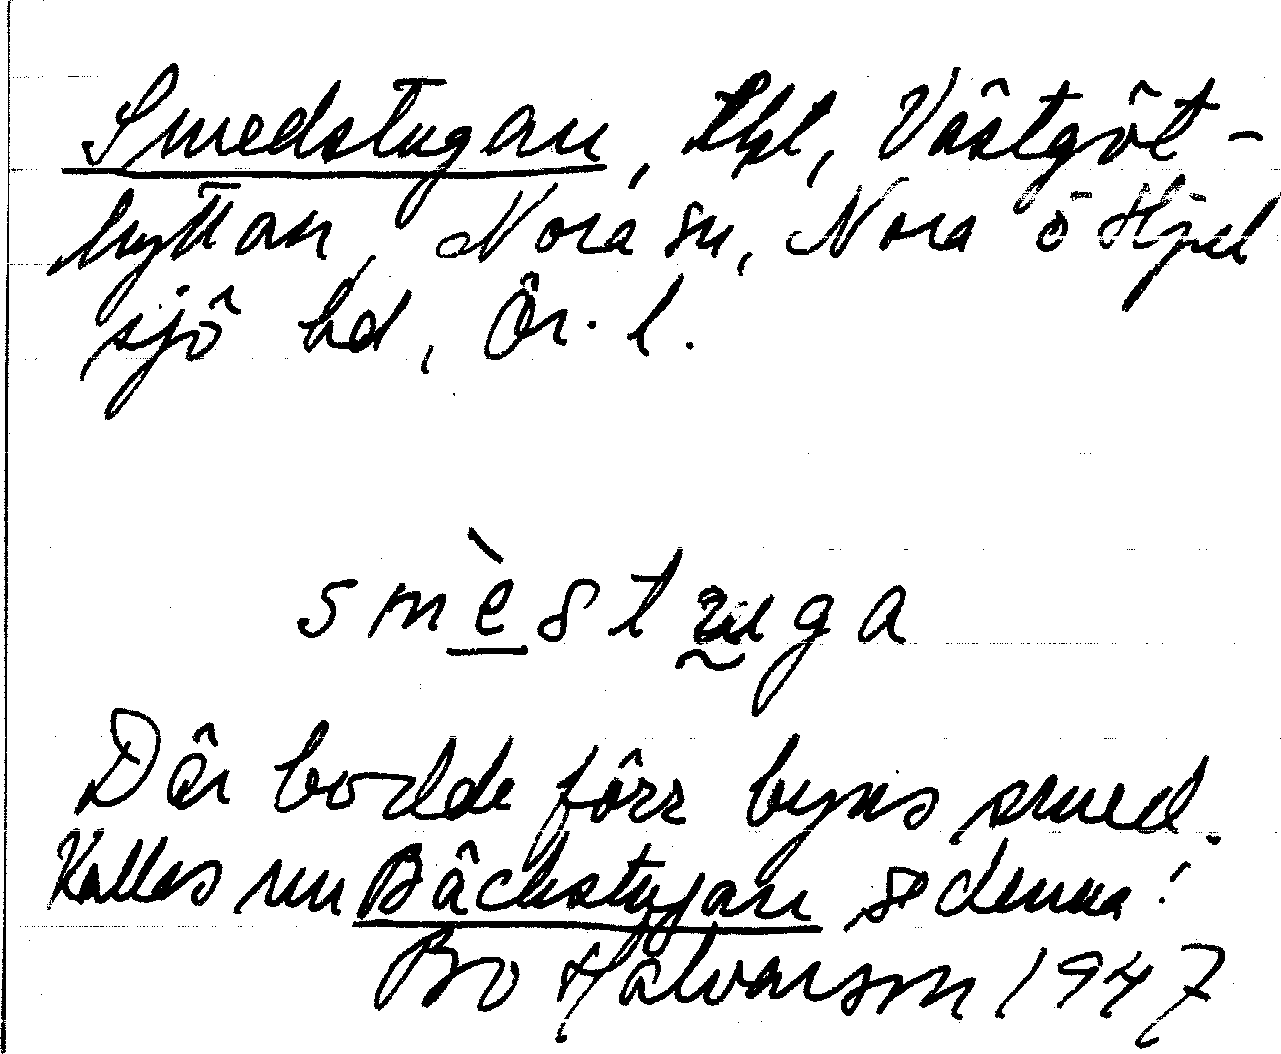 Smedstugan, lht, Västgöt-
hyttan, Nora sn, Nora o Hjul
sjö hd, Ör. l.
smèstuga
Där bodde förr byns smed.
Kallas nu Bäckstugan se denna!
Bo Halvarson 1947